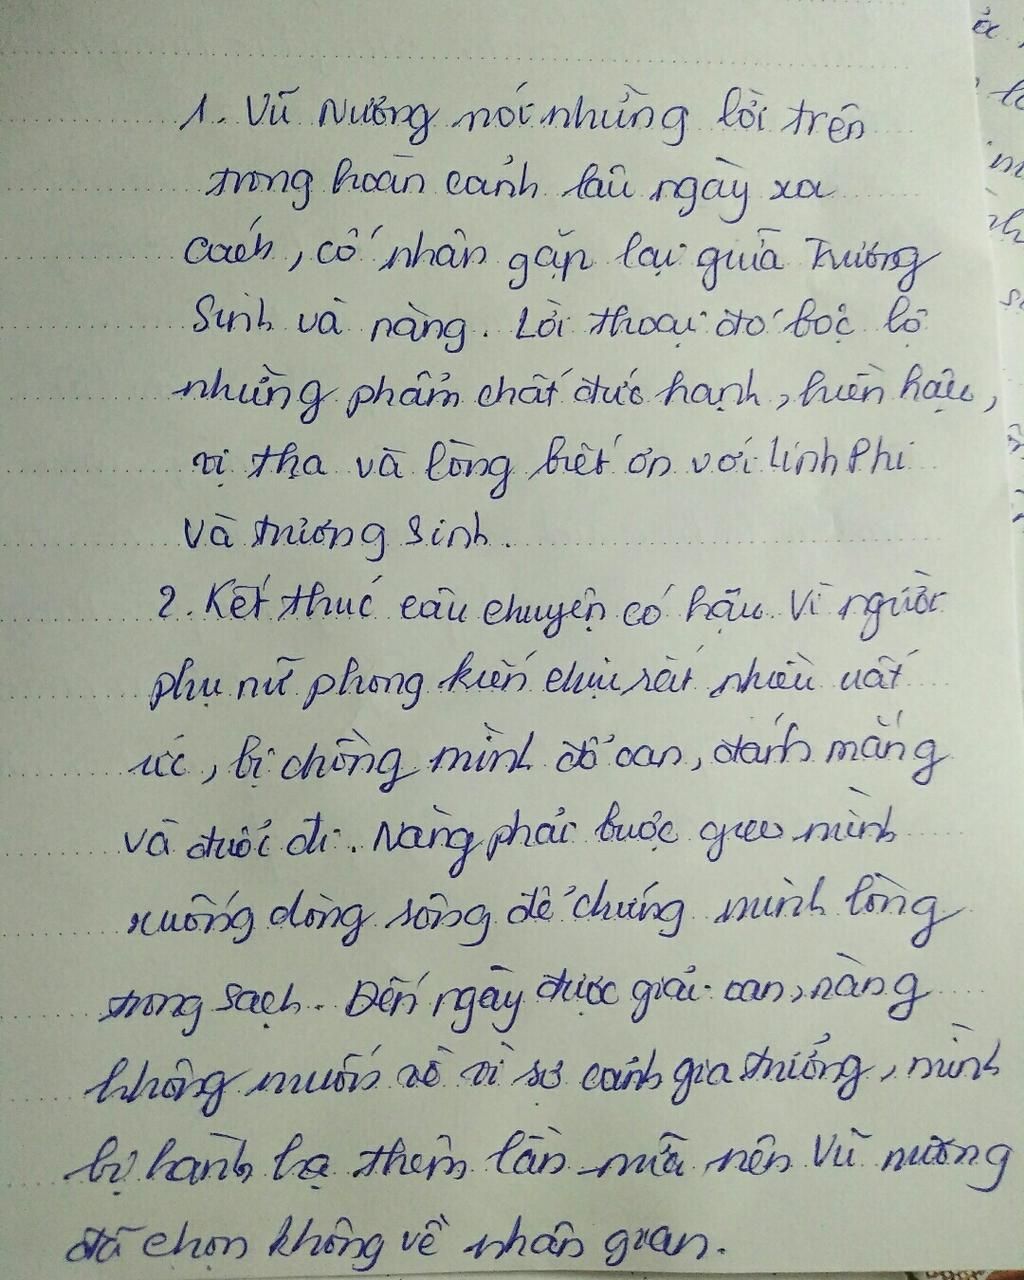 1. Vũ Nương nói những lời trên
trong hoàn cảnh lâu ngày xa
cách, cố nhân gặp lại giữa Trương
Sinh và nàng. Lời thoại đó bộc lộ
những phẩm chất đức hạnh, hiền hậu,
vị tha và lòng biết ơn với Linh Phi
và trương Sinh.
2. Kết thúc câu chuyện có hậu. Vì người
phụ nữ phong kiến chịu rất nhiều uất
ức, bị chồng mình đổ oan, đánh mắng
và đuổi đi. Nàng phải buộc gieo mình
xuống dòng sông để chứng minh lòng
trong sạch. Đến ngày được giải oan, nàng
không muốn về vì sợ cảnh gia trưởng, mình
bị hành hạ thêm lần nữa nên Vũ nương
đã chọn không về nhân gian.